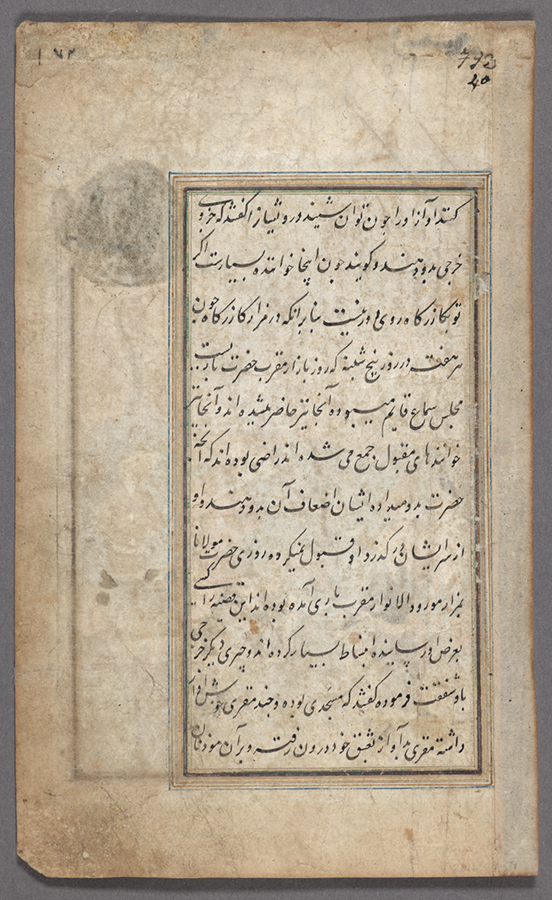 ۱۷۲
40
کنند او آواز او را چون توان شنید درویشان را گفتند که جزوی
خرجی بدو دهند و گویند چون اینجا خواننده بسیارست اگر
تو بکازرگاه روی دور نیست بنابرانکه در مزار کازرگاه چون
هر هفته در روز پنج شنبه که روز بازار مقرب حضرت باریست
مجلس سماع قایم میبوده آنجا نیز حاضر میشده اند و آنجا نیز
خوانندهای مقبول جمع می شده اند راضی بوده اند که آنچه
حضرت بدو میداده ایشان اضعاف آن بدو دهند و او
از سر ایشان در گذرد او قبول نمیکرده روزی حضرت مولانا
بمزار مورود الانوار مقرب باری آمده بوده اند این قضیه را کسی
بعرض او رسانیده انبساط بسیار کرده اند و چیزی دیگر خرجی
باو شفقت فرموده گفتند که مسجدی بوده و چند مقری خوش آواز
داشته مقری بد آواز نعیق خود درون رفته و بر آن موذنان